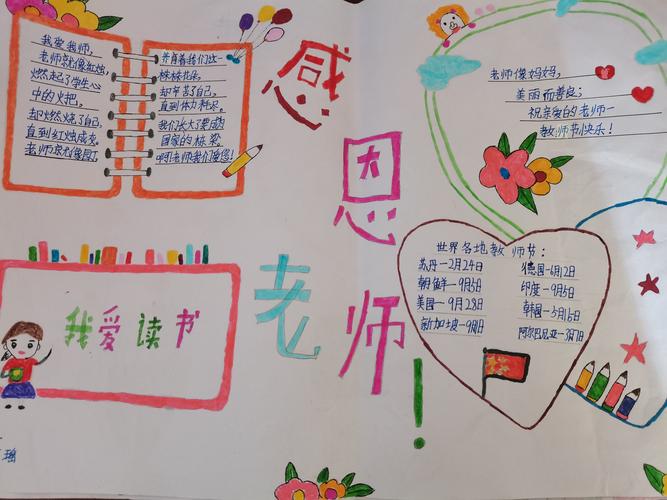 我爱我师，
老师就像红烛，
燃起了学生心
中的火把，
却燃烧了自己，
直到红烛成灰。
老师京尤像园丁
养育着我们这一
株株花朵，
却辛苦了自己，
直到体力耗尽。
我们长大了要成为
国家的栋梁，
啊!老师我们爱您!
感
恩
老
师
!
老师像妈妈，
美丽而善良；
祝亲爱的老师—
教师节快乐!
世界各地教师节：
苏丹—2月24日
德国—6月12日
朝鲜—9月5日
印度—9月5日
美国—9月28日
韩国—5月16日
新加坡—9月1日
阿尔巴尼亚—3月7日
我爱读书
瑶